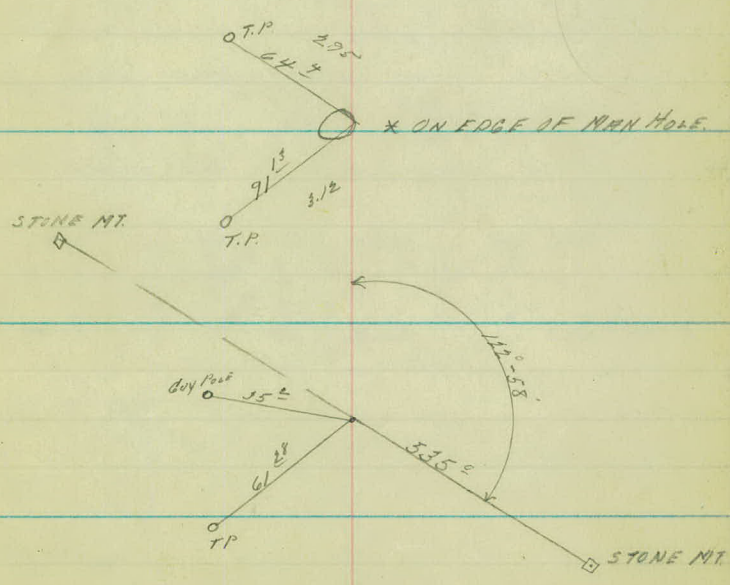 T.P.
295
64 4
* ON EDGE OF MAN HOLE.
91 13
3.12
T.P.
STONE MT.
122°-58'
GUY POLE
35 2
535 0
61 28
TP
STONE MT.